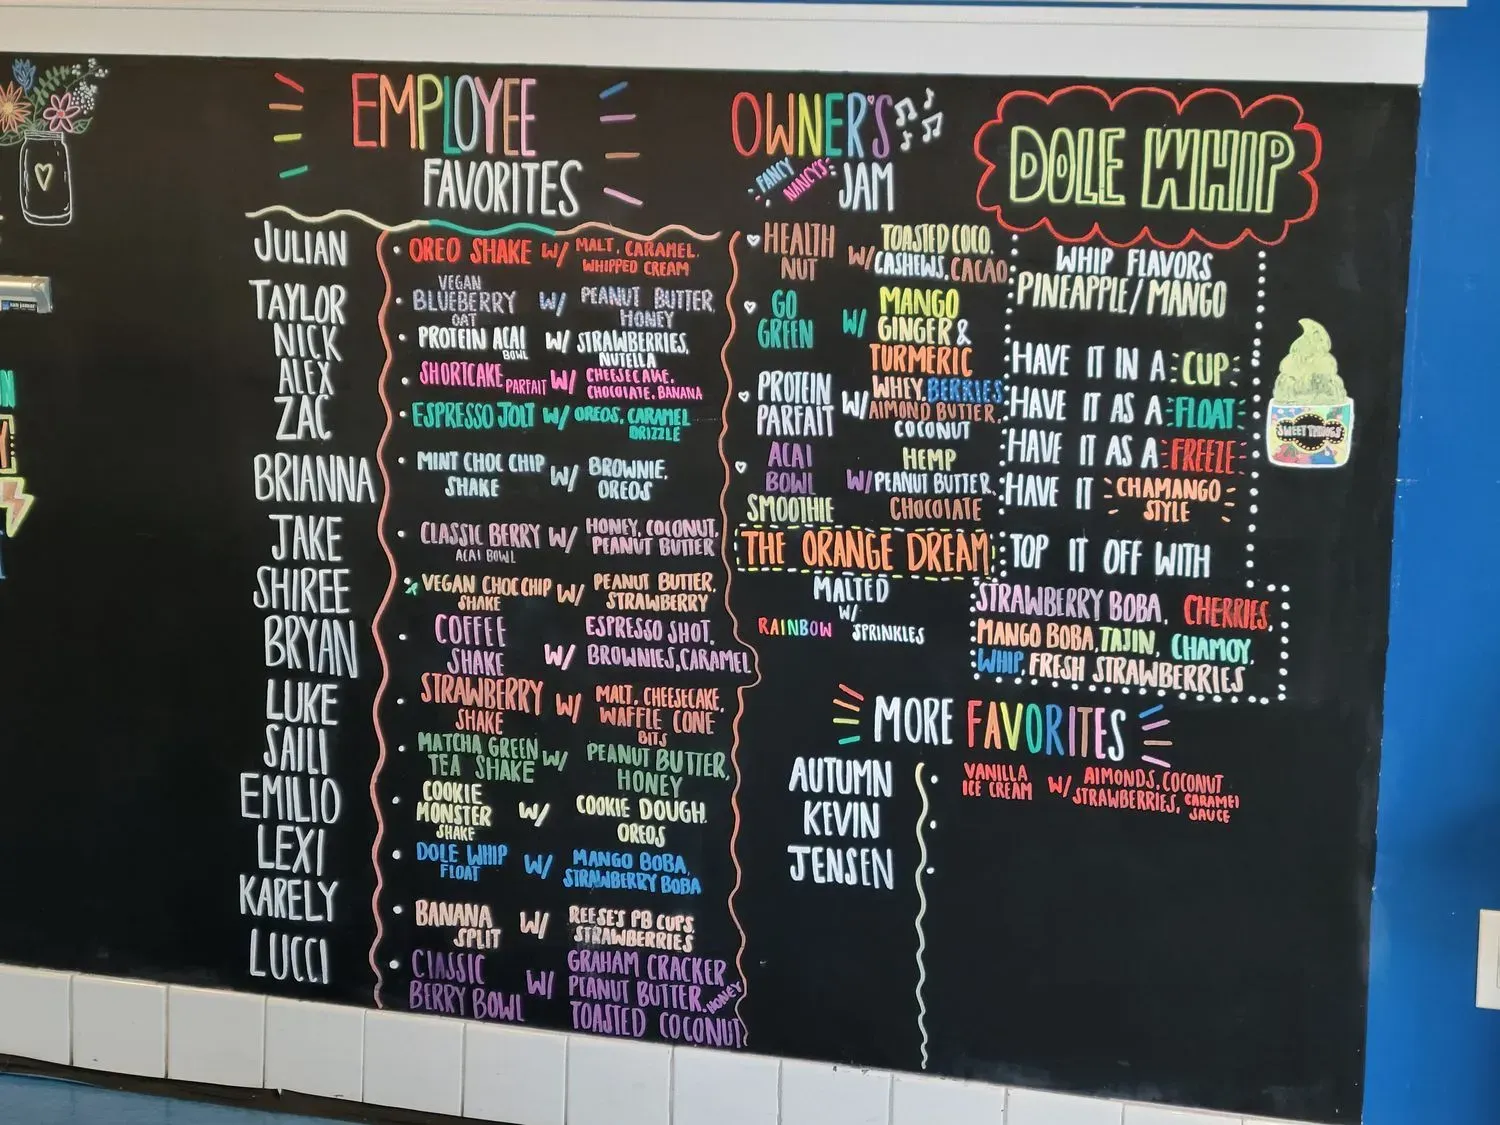 EMPLOYEE
FAVORITES
JULIAN
OREO SHAKE W/ MALT, CARAMEL,
WHIPPED CREAM
TAYLOR
VEGAN
BLUEBERRY W/ PEANUT BUTTER,
OAT HONEY
NICK
PROTEIN ACAI W/ STRAWBERRIES,
BOWL NUTELLA
ALEX
SHORTCAKE PARFAIT W/ CHEESECAKE,
CHOCOLATE, BANANA
ZAC
ESPRESSO JOLT W/ OREOS, CARAMEL
DRIZZLE
BRIANNA
MINT CHOC CHIP W/ BROWNIE,
SHAKE OREOS
JAKE
CLASSIC BERRY W/ HONEY, COCONUT,
ACAI BOWL PEANUT BUTTER
SHIREE
VEGAN CHOC CHIP W/ PEANUT BUTTER,
SHAKE STRAWBERRY
BRYAN
COFFEE ESPRESSO SHOT,
SHAKE W/ BROWNIES, CARAMEL
LUKE
STRAWBERRY W/ MALT, CHEESECAKE,
SHAKE WAFFLE CONE
BITS
SAILI
MATCHA GREEN W/ PEANUT BUTTER,
TEA SHAKE HONEY
EMILIO
COOKIE
MONSTER W/ COOKIE DOUGH,
SHAKE OREOS
LEXI
DOLE WHIP W/ MANGO BOBA,
FLOAT STRAWBERRY BOBA
KARELY
BANANA W/ REESE'S PB CUPS,
SPLIT STRAWBERRIES
LUCCI
CLASSIC W/ GRAHAM CRACKER
BERRY BOWL PEANUT BUTTER, HONEY
TOASTED COCONUT
OWNER'S
FANCY NANCY'S JAM
HEALTH W/ TOASTED COCO,
NUT CASHEWS, CACAO
GO W/ MANGO
GREEN GINGER &
TURMERIC
PROTEIN W/ WHEY, BERRIES,
PARFAIT ALMOND BUTTER,
COCONUT
ACAI HEMP
BOWL W/ PEANUT BUTTER,
SMOOTHIE CHOCOLATE
THE ORANGE DREAM
MALTED
W/
RAINBOW SPRINKLES
DOLE WHIP
WHIP FLAVORS
PINEAPPLE/MANGO
HAVE IT IN A CUP
HAVE IT AS A FLOAT
HAVE IT AS A FREEZE
HAVE IT CHAMANGO
STYLE
TOP IT OFF WITH
STRAWBERRY BOBA, CHERRIES,
MANGO BOBA, TAJIN, CHAMOY,
WHIP, FRESH STRAWBERRIES
SWEET THINGS
MORE FAVORITES
AUTUMN
VANILLA W/ ALMONDS, COCONUT
ICE CREAM STRAWBERRIES, CARAMEL
SAUCE
KEVIN
JENSEN